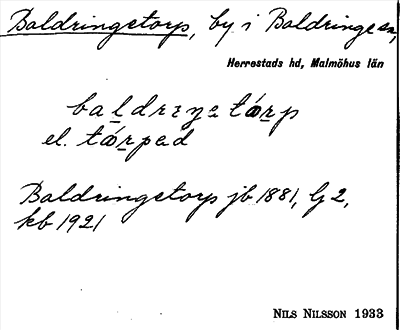 Baldringetorp, by i Baldringe sn,
Herrestads hd, Malmöhus län
baldrıŋatǿrp
el. tǿrpad
Baldringetorp jb 1881, G 2,
kb 1921
NILS NILSSON 1933